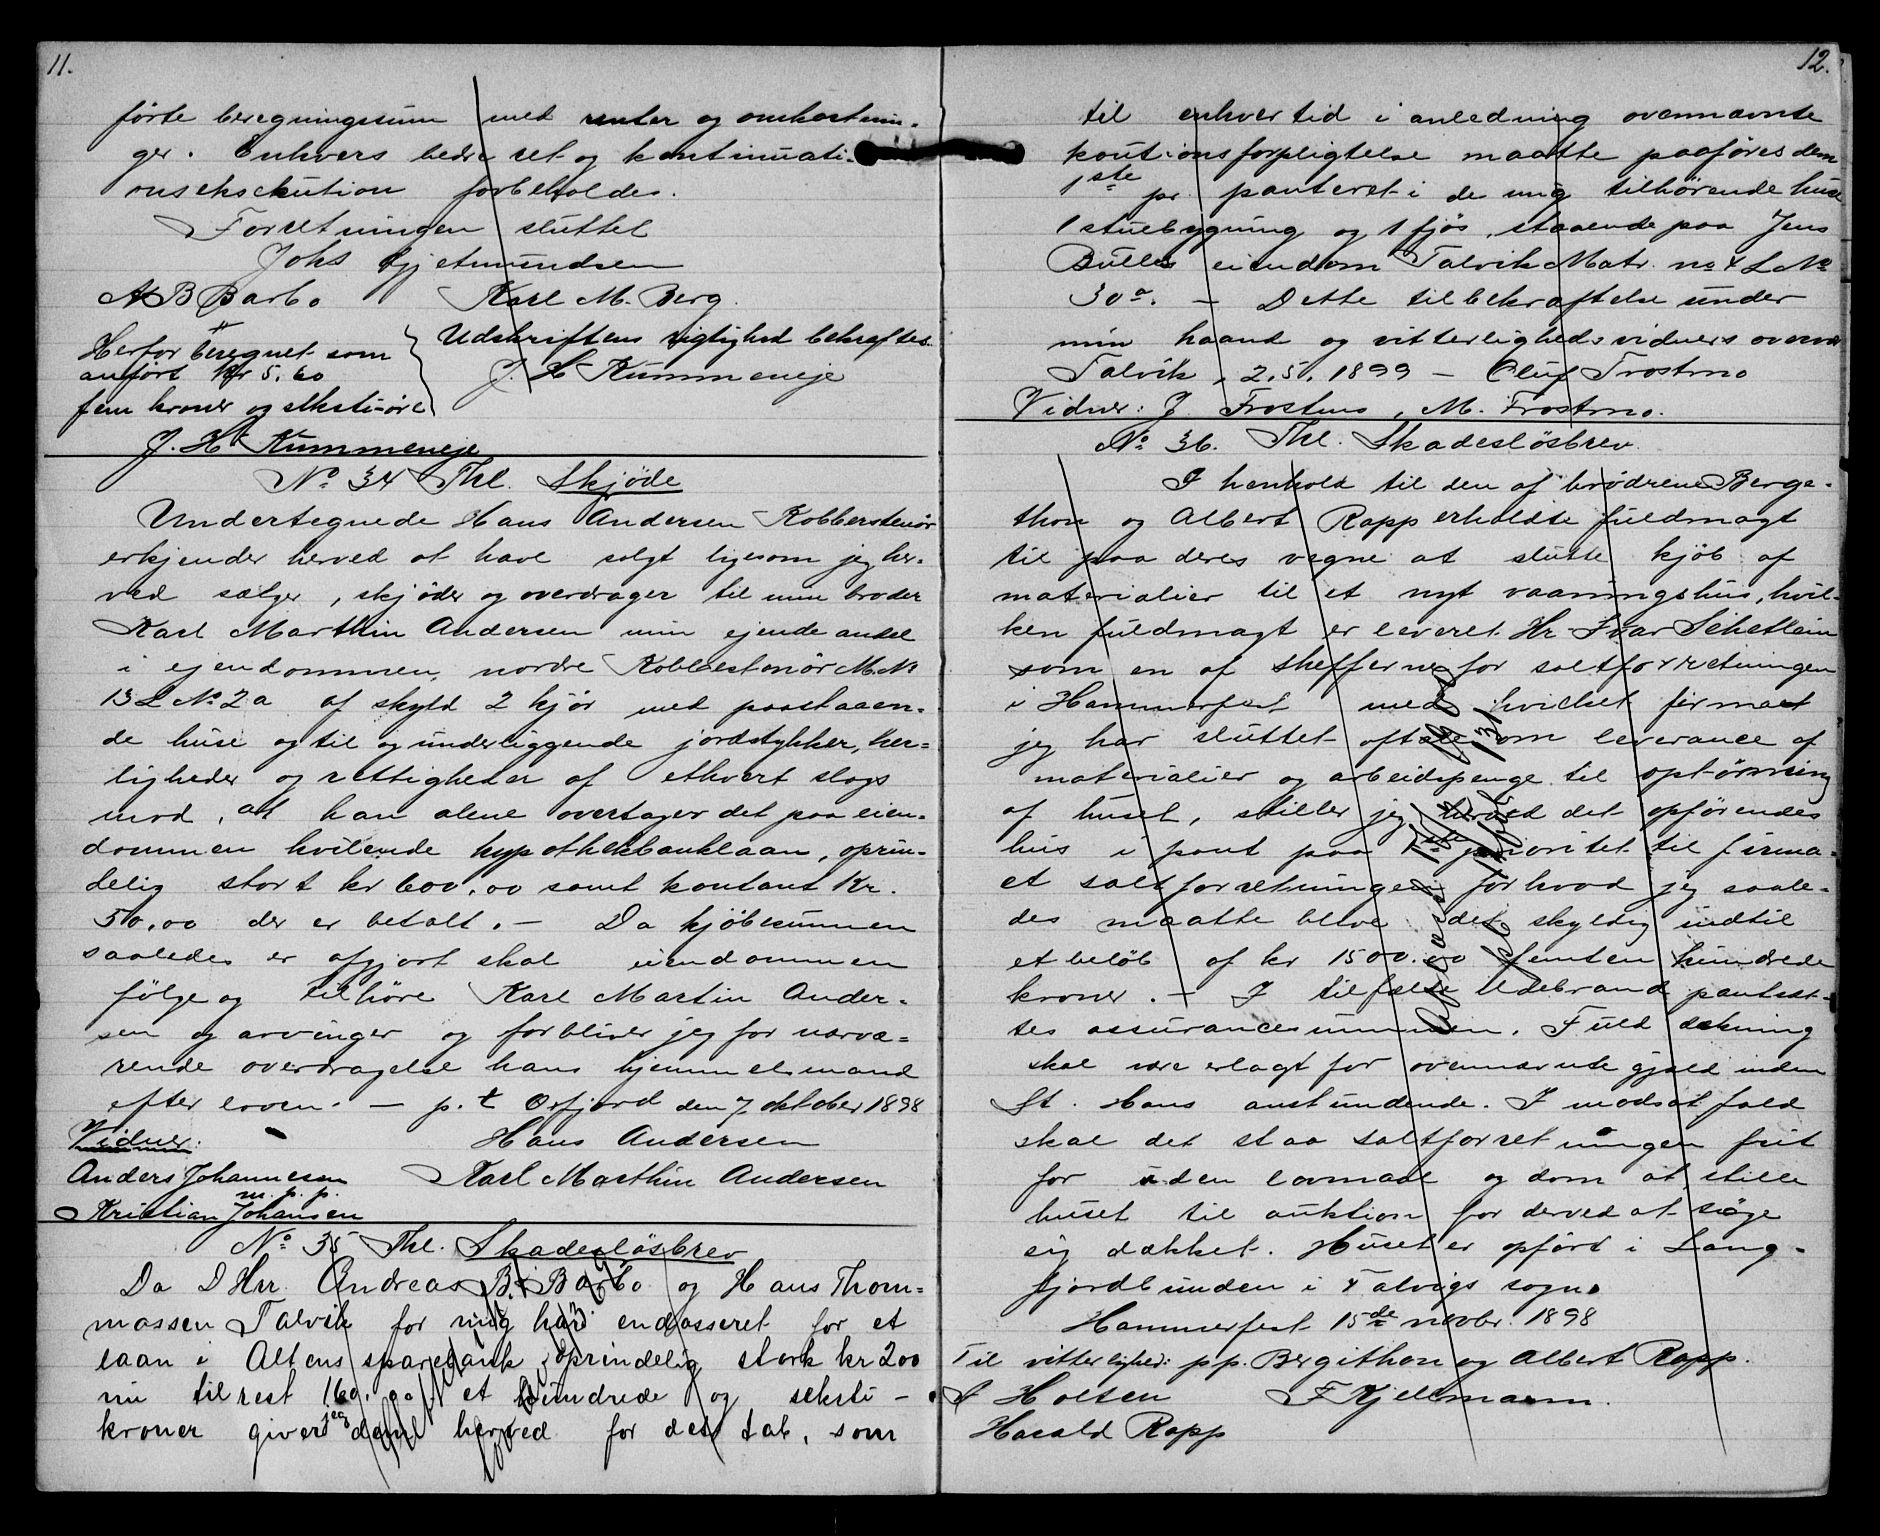 11.
förte beregningssum med renter og omkostnin-
ger. Enhvers bedre ret og kontinuati-
onseksekution forbeholdes.
Forretningen sluttet
Johs Gjetmundsen
A B Barbo Karl M. Berg.
Herfor beregnet som
anfört Kr 5.60
fem kroner og seksti öre
Udskriftens rigtighed bekræftes.
J. H. Kummeneje
J. H. Kummeneje
No 34 Thl. Skjöde
Undertegnede Hans Andersen Kobberstenör
erkjender herved at have solgt ligesom jeg her-
ved sælger, skjöder og overdrager til min broder
Karl Marthin Andersen min ejende andel
i ejendommen, nordre Kobbestenör M.No
13 L No 2a af skyld 2 kjör med paastaaen-
de huse og til og underliggende jordstykker, her-
ligheder og rettigheder af ethvert slags
mod, at han alene overtager det paa eien-
dommen hvilende hypothekbanklaan, oprin-
delig stort kr 600,00 samt kontant Kr.
50,00 der er betalt. — Da kjöbesummen
saaledes er afgjort skal eiendommen
fölge og tilhöre Karl Martin Ander-
sen og arvinger og forbliver jeg for nærvæ-
rende overdragelse hans hjemmelsmand
efter loven. — p.t Öxfjord den 7 oktober 1898
Vidner: Hans Andersen
Anders Johannesen Karl Marthin Andersen
m.p.p.
Kristian Johansen
No 35 Thl. Skadeslösbrev
Da D Hrr. Andreas B. Barbo og Hans Thom-
massen Talvik for mig har endosseret for et
laan i Altens sparebank oprindelig stork kr 200
nu tilrest 160.00 et hundrede og seksti-
kroner giver jeg dem herved for det tab, som
12.
til enhver tid i anledning ovennævnte
kautionsforpligtelse maatte paaföres dem
1ste pr. panteret i de mig tilhörende huse
1 stuebygning og 1 fjös, staaende paa Jens
Bulls eiendom Talvik Matr. no 4 L No
30a. — Dette til bekræftelse under
min haand og vitterlighedsvidners overvær
Talvik, 2.5.1899 — Oluf Trostmo
Vidner: J Trostmo, M. Trostmo.
No 36. Thl. Skadeslösbrev.
I henhold til den af brödrene Berge-
thon og Albert Rapp erholdte fuldmagt
til paa deres vegne at slutte kjöb af
materialier til et nyt vaaningshus, hvil-
ken fuldmagt er leveret Hr Ivar Schetlein
som en af schefferne for saltforretningen
i Hammerfest med hvilket firma
jeg har sluttet aftale om leverance af
materialier og arbeidspenge til optömring
af huset, stiller jeg herved det opförendes
hus i pant paa 1ste prioritet til firma-
et saltforretningen for hvad jeg saale-
des maatte blive det skyldig indtil
et belöb af kr 1500.00 femten hundrede
kroner. — I tilfælde ildebrand pantsæt-
tes assurancesummen. Fuld dækning
skal være erlagt for ovennævnte gjæld inden
St. Hans anstundende. I modsat fald
skal det staa saltforretningen frit
for uden lovmaal og dom at stille
huset til auktion for derved at söge
sig dækket. Huset er opfört i Lang-
fjordbunden i Talvigs sogn.
Hammerfest 15de novbr. 1898
Til vitterlighed: pp. Bergithon og Albert Rapp.
Holsen F Kjellmann.
Harald Rapp